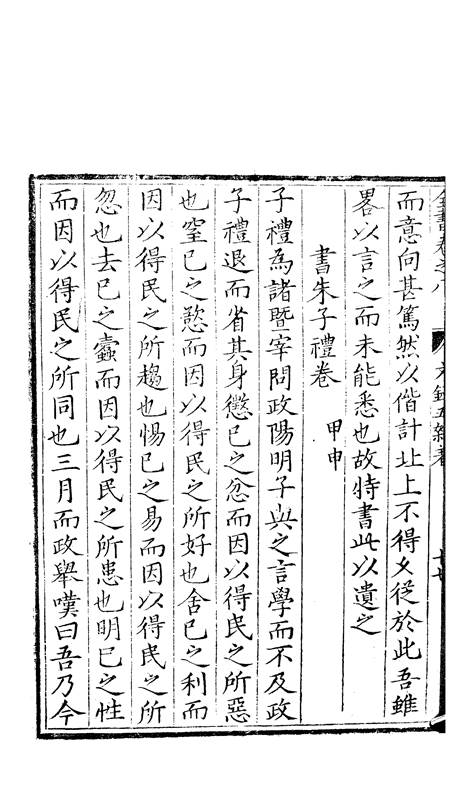 而意向甚篤然以偕計北上不得久從於此吾雖
畧以言之而未能悉也故特書此以遺之
書朱子禮卷 甲申
子禮為諸暨宰問政陽明子與之言學而不及政
子禮退而省其身懲已之忿而因以得民之所惡
也窒已之慾而因以得民之所好也舍已之利而
因以得民之所趨也惕已之易而因以得民之所
忽也去已之蠧而因以得民之所患也明已之性
而因以得民之所同也三月而政舉嘆曰吾乃今